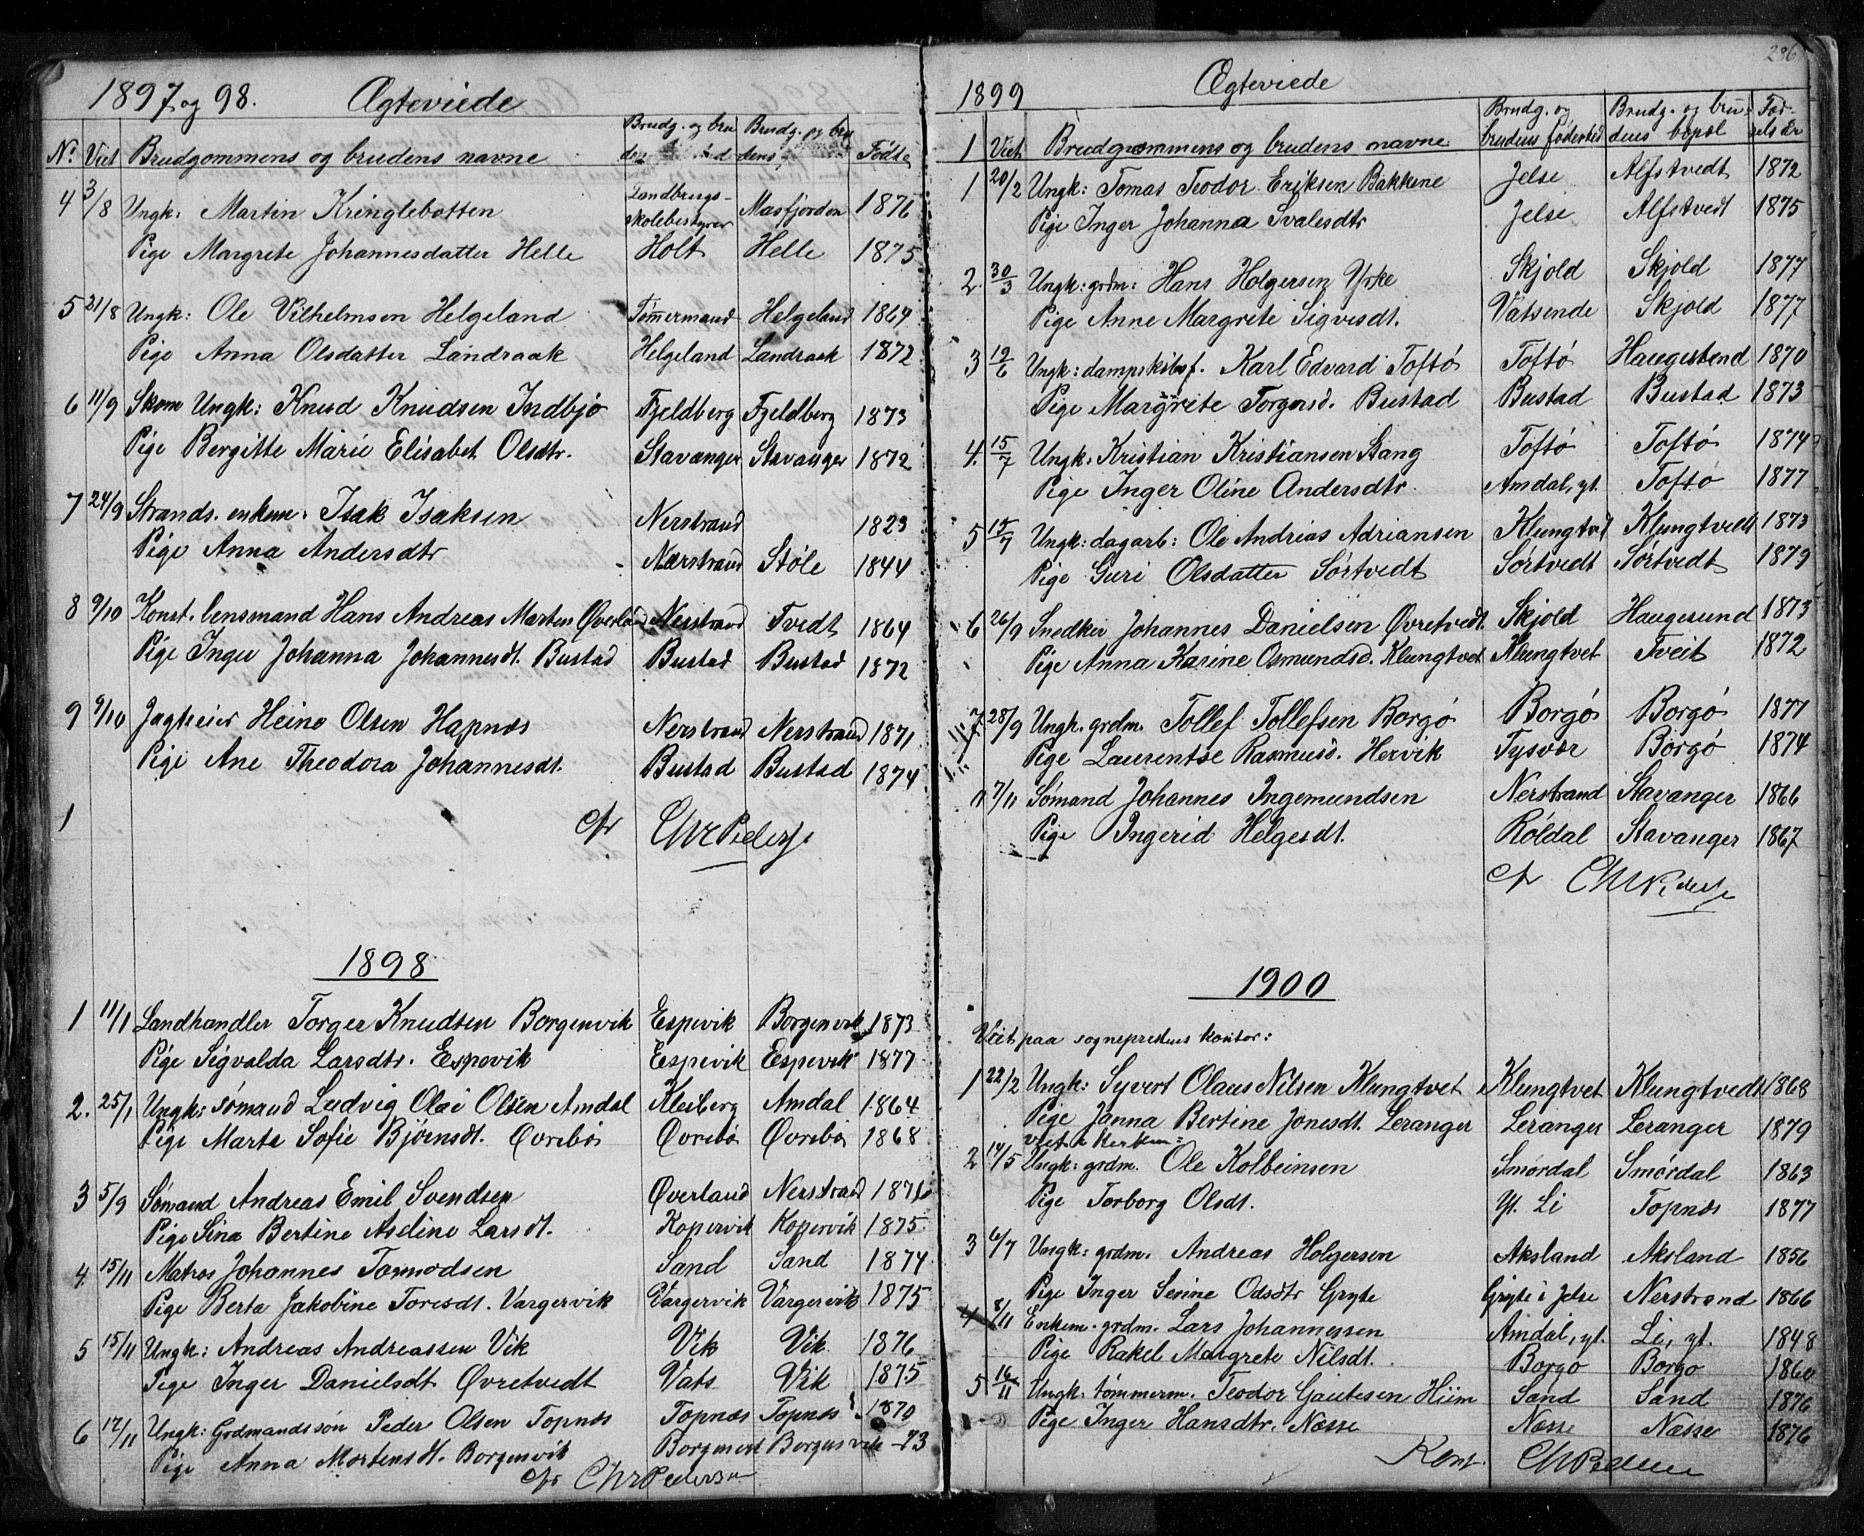 1897 og 98. Ægteviede
N: Viet Brudgommens og brudens navne Brudg. og bru Brudg. og bru dens Fødte
4 3/8 Ungk: Martin Kringlebotten Landbrugs-skolebestyrer Masfjorden 1876
Pige Margrete Johannesdatter Helle Holt Helle 1875
5 21/8 Ungk: Ole Vilhelmsen Helgeland Tømmermand Helgeland 1864
Pige Anna Olsdatter Landraak Helgeland Landraak 1872
6 11/9 Skom Ungk: Knud Knudsen Indbjo Fjeldberg Fjeldberg 1873
Pige Bergitte Marie Elisabet Olsdtr. Stavanger Stavanger 1872
7 24/9 Strands. enkem. Isak Isaksen Nerstrand 1823
Pige Anna Andersdtr Nærstrand Støle 1844
8 9/10 Konst. lensmand Hans Andreas Marten Øverland Nerstrand Tvedt 1864
Pige Inger Johanna Johannesdt. Bustad Bustad Bustad 1872
9 9/10 Jagtreier Heine Olsen Hapnæs Nerstrand Nerstrand 1871
Pige Ane Theodora Johannesdt. Bustad Bustad 1874
1 Chr Pedersen
1898
1 11/1 Landhandler Torger Knudsen Borgenvik Espevik Borgenvik 1873
Pige Sigvalda Larsdtr. Espevik Espevik Espevik 1877
2. 25/1 Ungk: sømand Ludvig Olai Olsen Amdal Kleiberg Amdal 1864
Pige Marta Sofie Bjørnsdt. Øvrebø Øvrebø Øvrebø 1868
3 5/9 Sømand Andreas Emil Svendsen Øverland Nerstrand 1876
Pige Sina Bertine Aseline Larsdt. Kopervik Kopervik 1875
4 15/11 Matros Johannes Tormodsen Sand Sand 1874
Pige Berta Jakobine Toresdt. Vargervik Vargervik Vargervik 1875
5 15/11 Ungk: Andreas Andreassen Vik Vik Vik 1876
Pige Inger Danielsdt Øvretvedt Vats Vik 1875
6 17/11 Ungk: Grdmandssøn Peder Olsen Topnæs Topnæs Topnæs 1870
Pige Anna Mortensdt. Borgenvik Borgenvik Borgenvik -73
Chr Pedersen
236
1899 Ægteviede
1 Viet Brudgommens og brudens navne Brudg. og brudens fødested Brudg. og brudens bopæl Fødselsår
1 20/2 Ungk: Tomas Teodor Eriksen Bakkene Jelse Alfstvedt 1872
Pige Inger Johanna Svalesdtr Jelse Alfstvedt 1875
2. 30/3 Ungk: grdm: Hans Holgersen Yrke Skjold Skjold 1877
Pige Anne Margrete Sigvesdt. Vatsende Skjold 1877
3 12/6 Ungk: dampskibsf. Karl Edvard Toftø Toftø Haugesund 1870
Pige Margrete Torgersd. Bustad Bustad Bustad 1873
4. 15/7 Ungk: Kristian Kristiansen Stang Toftø Toftø 1874
Pige Inger Oline Andersdtr. Amdal, yt. Toftø 1877
5 15/7 Ungk: dagarb: Ole Andreas Adriansen Klungtvedt Klungtvedt 1873
Pige Guri Olsdatter Sørtvedt Sørtvedt Sørtvedt 1879
6 26/9 Snedker Johannes Danielsen Øvretvedt Skjold Haugesund 1873
Pige Anna Karine Osmundsd. Klungtvet Klungtvet Tveit 1872
7 28/9 Ungk. grdm. Tollef Tollefsen Borgø Borgø Borgø 1877
Pige Laurentse Rasmusd. Hervik Tysvær Borgø 1874
7/11 Sømand Johannes Ingemundsen Nerstrand Stavanger 1866
Pige Ingerid Helgesdt. Røldal Stavanger 1867
1900
Viet paa sogneprestens kontor:
1 22/2 Ungk: Syvert Olaus Nilsen Klungtvet Klungtvet Klungtvedt 1868
Pige Janna Bertine Jonesdt. Leranger Leranger Leranger 1879
Viet i kirken:
2 14/5 Ungk: grdm. Ole Kolbeinsen Smørdal Smørdal 1863
Pige Torborg Olsdt. Yt. Li Topnæs 1877
3 6/7 Ungk: grdm. Andreas Holgersen Aksland Aksland 1856
Pige Inger Serine Odsdtr Gryte Gryte i Jelse Nerstrand 1866
4 8/11 Enkem. grdm. Lars Johannessen Amdal, yt. Li, yt. 1848
Pige Rakel Margrete Nilsdt. Borgø Borgø 1860
5 16/11 Ungk: tømmerm. Teodor Gautesen Hiim Sand Sand 1876
Pige Inger Hansdtr. Næsse Næsse Næsse 1876
Konf. Chr Pedersen